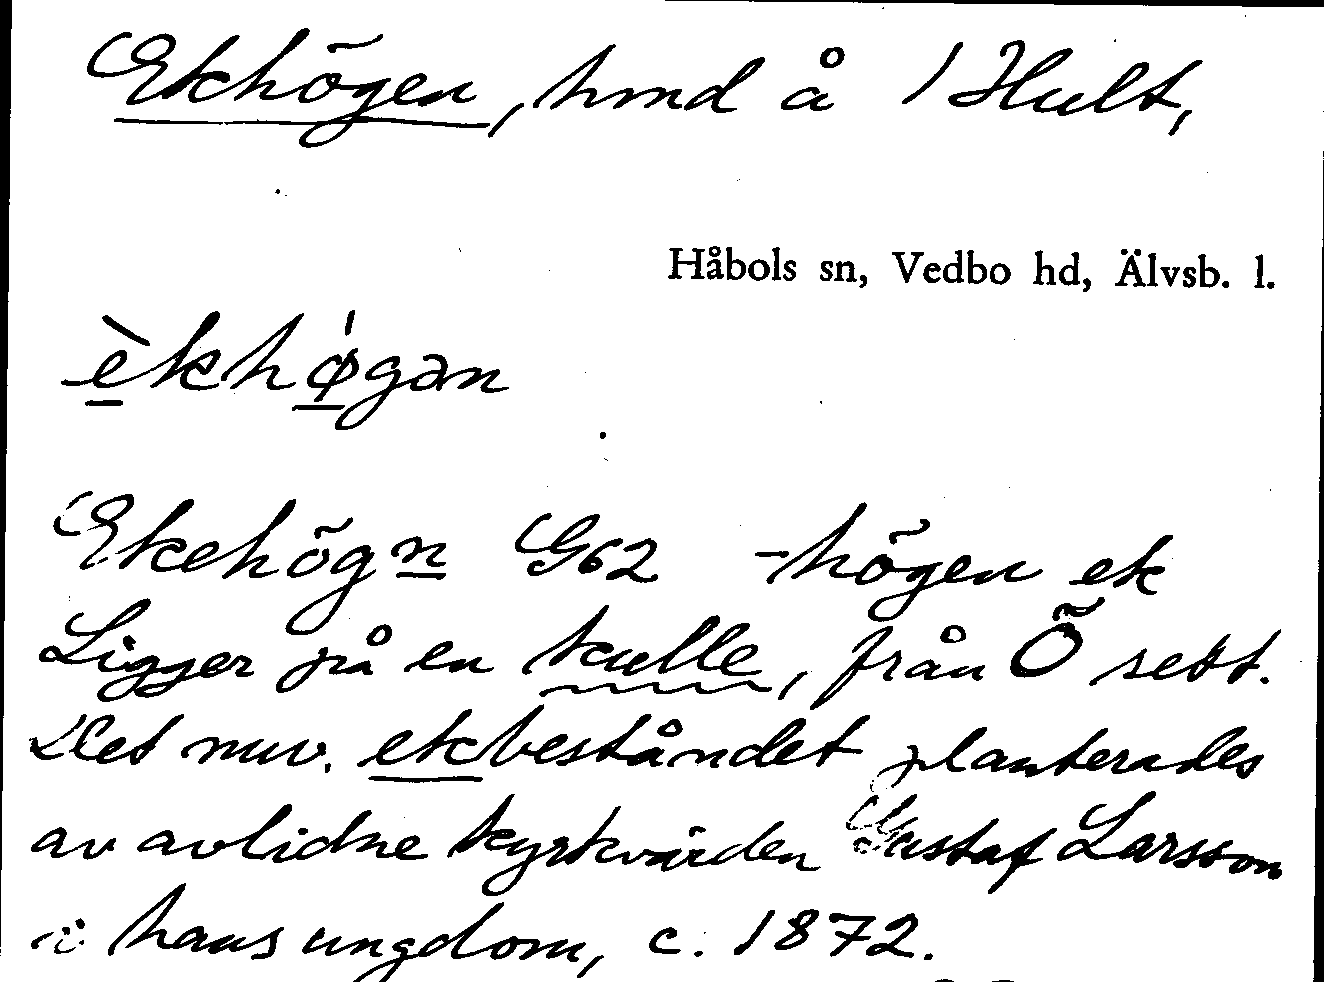 Ekhögen, hmd å 1 Hult,
Håbols sn, Vedbo hd, Älvsb. l.
èkhø̍gən
Ekehögn G62 -högen ek
Ligger på en kulle, från Ö sett.
Det nuv. ekbeståndet planterades
av avlidne kyrkvärden Gustaf Larsson
i hans ungdom, c. 1872.